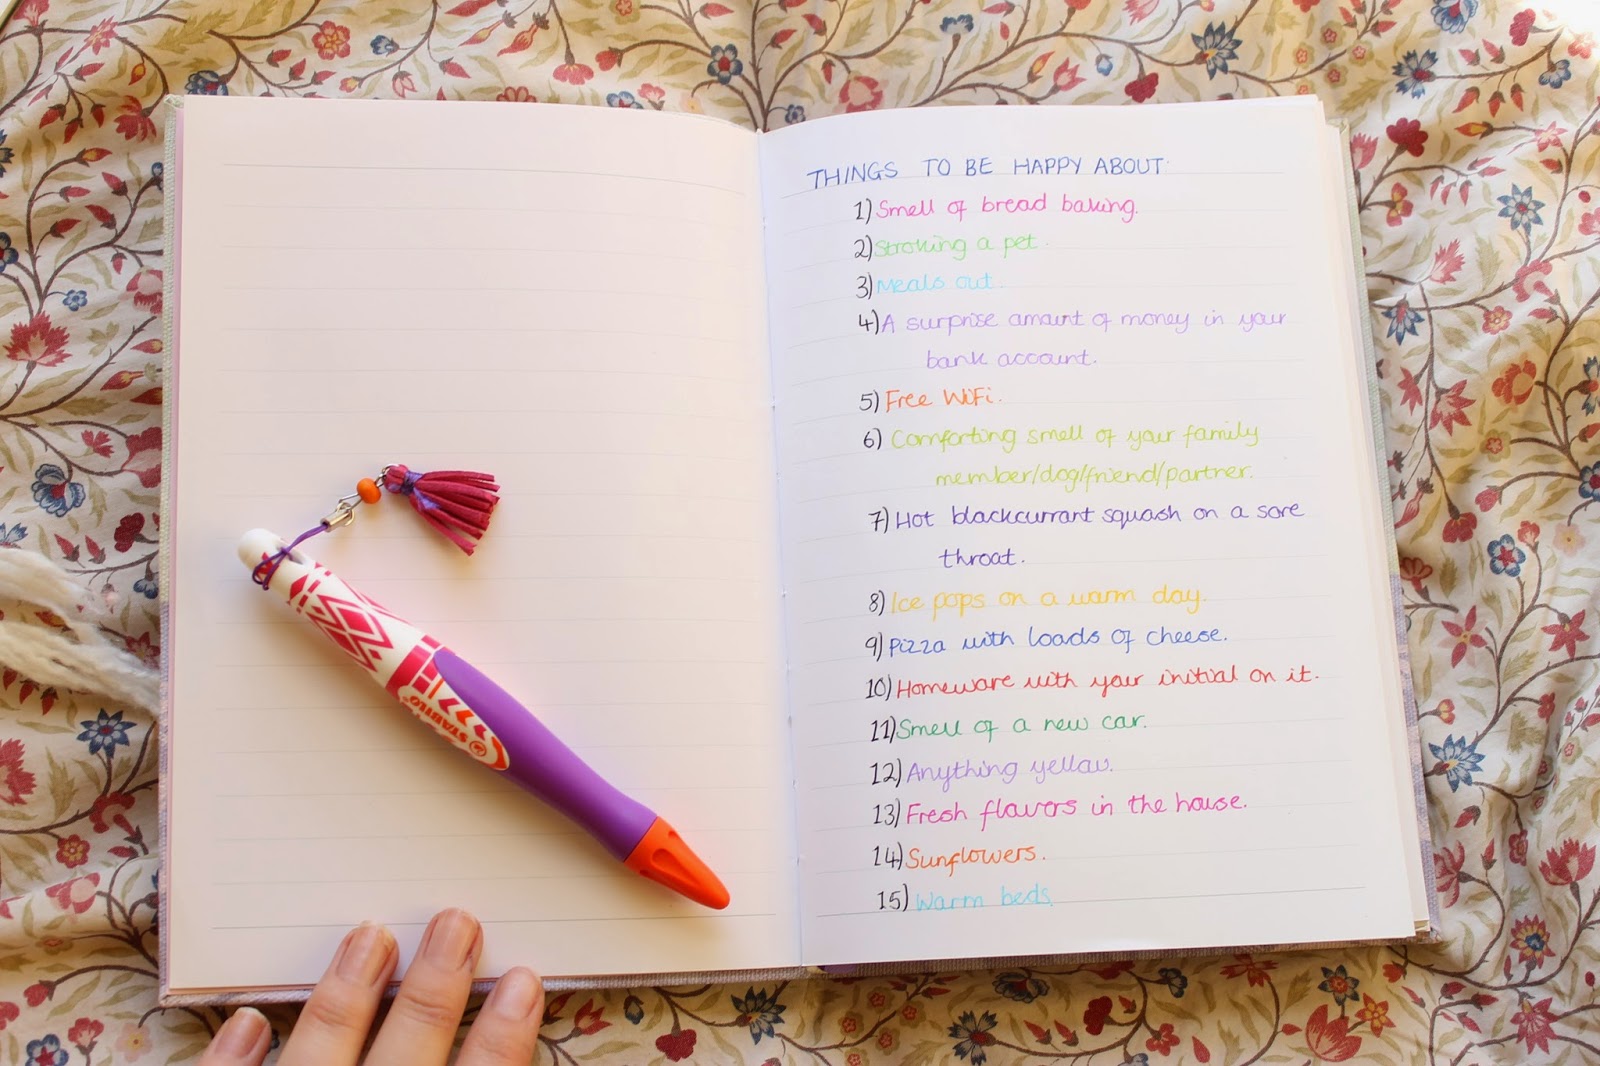 THINGS TO BE HAPPY ABOUT.
1) Smell of bread baking.
2) Stroking a pet.
3) Meals out.
4) A surprise amount of money in your
bank account.
5) Free WiFi.
6) Comforting smell of your family
member/dog/friend/partner.
7) Hot blackcurrant squash on a sore
throat.
8) Ice pops on a warm day.
9) Pizza with loads of cheese.
10) Homeware with your initial on it.
11) Smell of a new car.
12) Anything yellow.
13) Fresh flowers in the house.
14) Sunflowers.
15) Warm beds.
STABILO